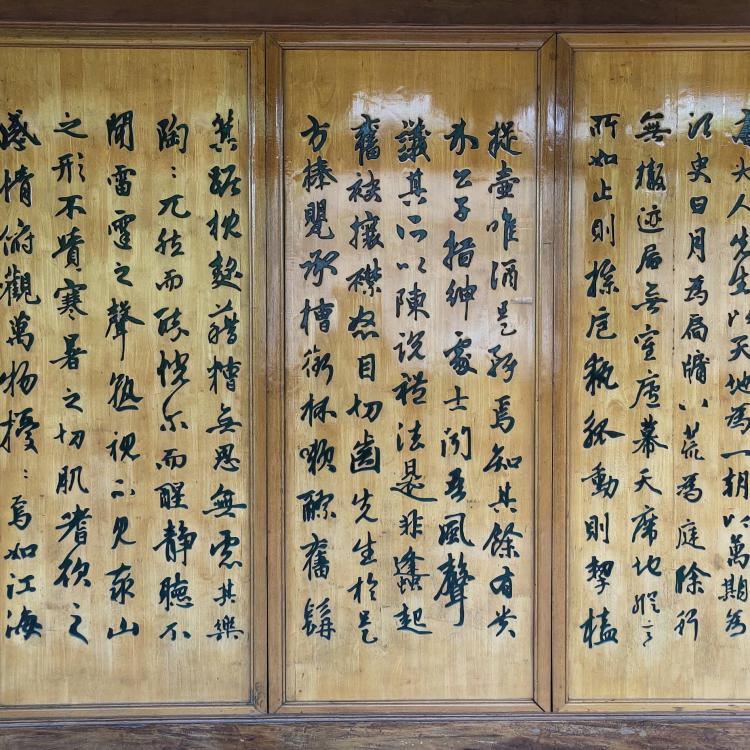 大人先生以天地為一朝以萬期為
須臾日月為扃牖八荒為庭除行
無轍迹居無室廬幕天席地縱意
所如止則操卮執觚動則挈榼
提壺唯酒是務焉知其餘有貴
介公子搢紳處士聞吾風聲
議其所以陳說禮法是非蠭起
奮袂攘襟怒目切齒先生於是
方捧甖承槽銜杯漱醪奮髯
箕踞枕麴藉糟無思無慮其樂
陶〻兀然而醉恍尔而醒靜聽不
聞雷霆之聲孰視不見泰山
之形不覺寒暑之切肌嗜欲之
感情俯觀萬物擾〻焉如江海